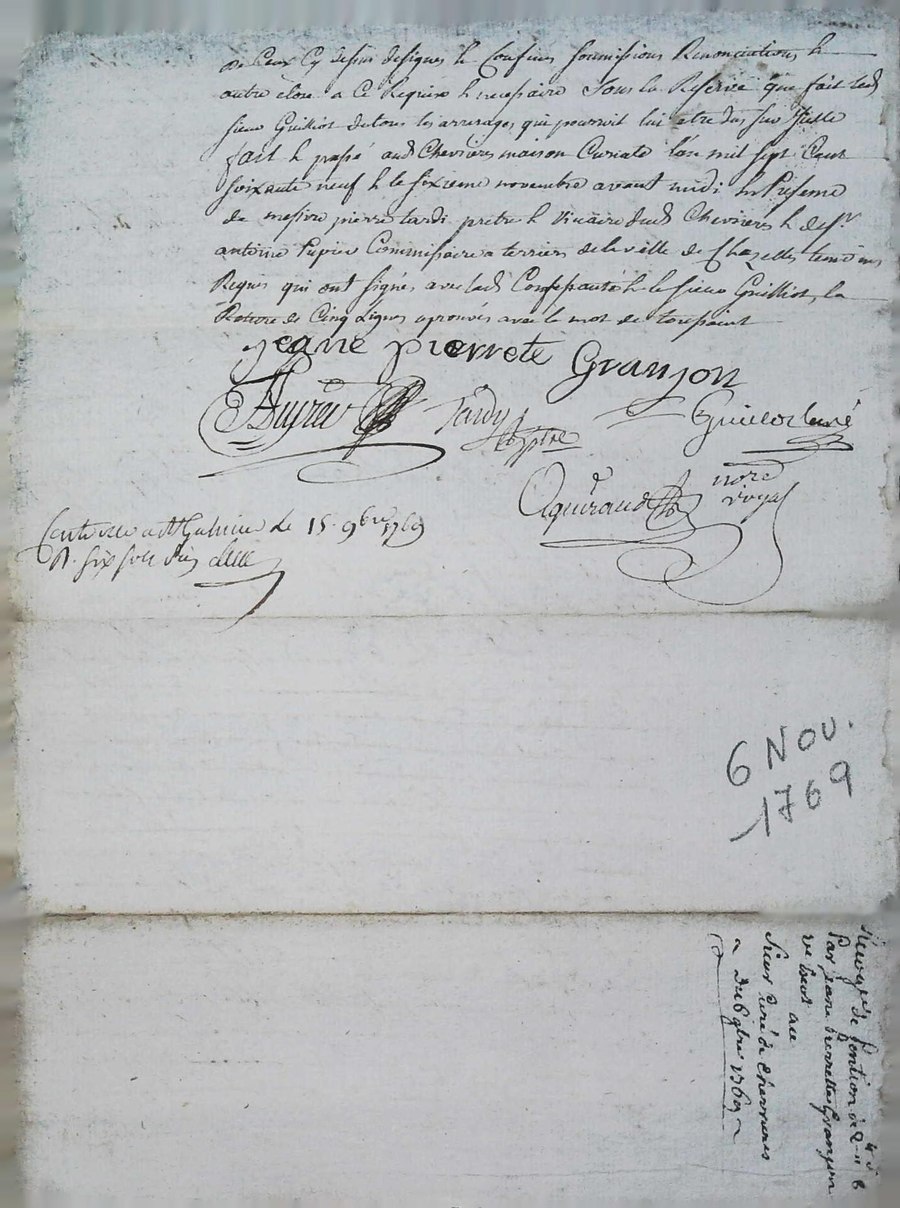 De Ceux Cy dessus designes & Confins soumissions Renonciations &
autre clore a Ce Requixe & necessaire sous la Reserve que fait led
sieur Guilliot de tous les arrerages qui pourroit lui etre dus sur
fait & passé aud Chevrieres maison Curiale l'an mil sept Cent
soixante neuf & le sixieme novembre avant midi En Presence
de messire pierre tardi pretre & Vicaire dud Chevrieres & de Sr
antoine Pupier Commissaire a terriers de la ville de Chazelles temoins
Requis qui ont signés avec lad Confessante & le sieur Guilliot, la
Rature de Cinq Lignes aprouvés avec le mot de
jeane pierrete Granjon
Pupier Tardy Guilliot curé
ptre
Aguiraud nore
royal
Controlle a St Galmier le 15 9bre 1769
R. six sols
6 NOV.
1769
de Pention de
Par jeane Pierrette Granjon
veuve
au
Sieur Curé de Chevrieres
Du 6 9bre 1769